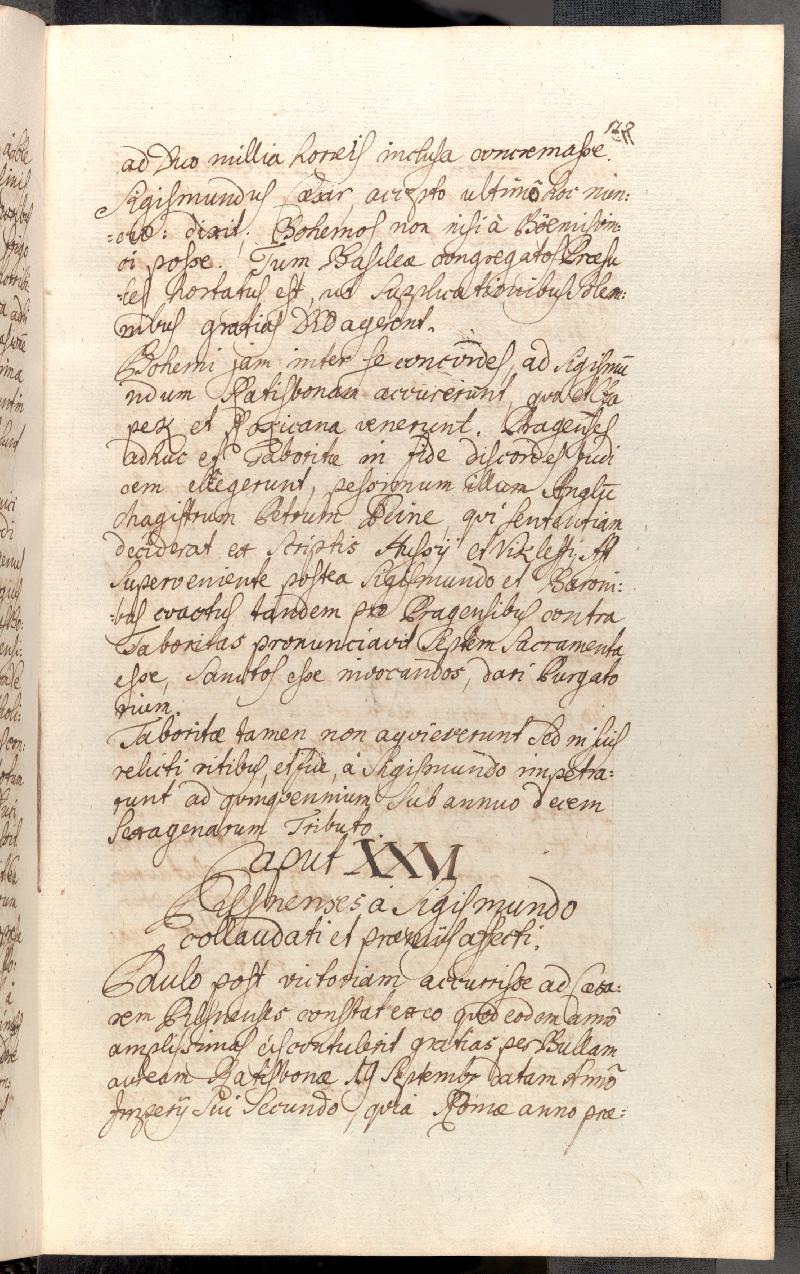 ad Duo millia horreis inclusa concremasse.
Sigismundus Caesar, accepto ultimô hoc nun:
=cio: dixit; Bohemos non nisi à Böemis vin:
ci posse. Tum Basileæ congregatos Præsu
=les hortatus est, ut supplicationibus solem:
nibus gratias DEO agerent.
Bohemi jam inter se concordes, ad Sigismū
ndum Ratisbonam accurerunt, qua et
pek et Rokicana venerunt. Pragenses
adhuc et Taboritæ in fide discordes judi
cem ellegerunt, pessimum illum Anglū
Magistrum Petrum Peine, qui sententiam
deciderat ex scriptis Hussÿ et Vikleffi. Ast
superveniente postea Sigismundo et Baroni:
=bus coactus tandem pro Pragensibus contra
Taboritas pronunciavit Septem Sacramenta
esse, Sanctos esse invocandos, dari Purgato
rium.
Taboritæ tamen non aqvieverunt sed in suis
relicti ritibus, et fide, à Sigismundo impetra:
runt ad qvinqvennium sub annuo decem
Sexagenarum Tributo.
Caput XXVI
Pilsnenses à Sigismundo
collaudati et præmiis affecti.
Paulo post victoriam accurrisse ad Cæsa:
rem Pilsnenses constat ex eo quod eodem annō
amplissimas eis contulerit gratias per Bullam
auream Ratisbonæ 19 Septembr datam Annō
Imperÿ sui Secundo, qvia Romæ anno præ: